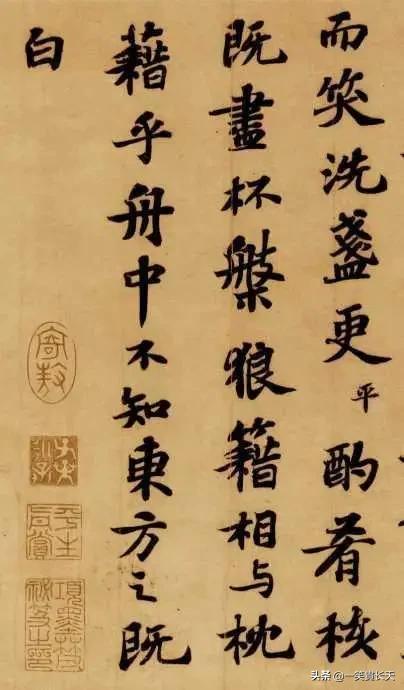 而笑洗盞更平酌肴核
既盡杯槃狼籍相与枕
藉乎舟中不知東方之既
白
头条 @一笑貴长天